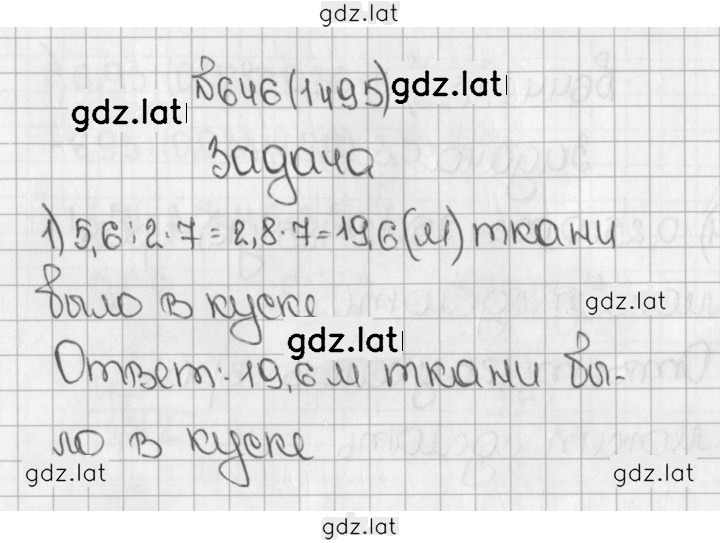 gdz.lat
№646(1495) gdz.lat
gdz.lat
Задача
1) 5,6:2·7=2,8·7=19,6(м) ткани
было в куске
gdz.lat
gdz.lat
Ответ: 19,6 м ткани бы-
ло в куске
gdz.lat gdz.lat
gdz.lat